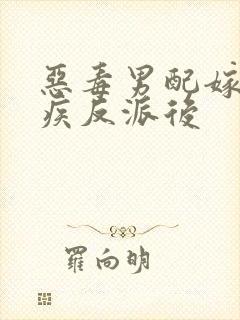 惡毒男配嫁
疾反派後
羅向明